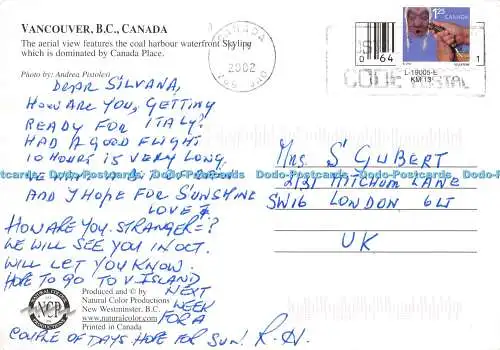 VANCOUVER, B.C., CANADA
The aerial view features the coal harbour waterfront Skyline
which is dominated by Canada Place.
Photo by: Andrea Pistolesi
DEAR SILVANA,
HOW ARE YOU, GETTING
READY FOR ITALY?
HAD A GOOD FLIGHT
10 HOURS IS VERY LONG.
AND I HOPE FOR SUNSHINE
LOVE
HOW ARE YOU STRANGER=?
WE WILL SEE YOU IN OCT.
WILL LET YOU KNOW.
HOPE TO GO TO V ISLAND
NEXT
WEEK
FOR A
COUPLE OF DAYS HOPE FOR SUN. R.H.
NATURAL COLOR
NCP
PRODUCTIONS
Produced and © by
Natural Color Productions
New Westminster, B.C.
www.naturalcolor.com
Printed in Canada
CANADA
2002
CODE POSTAL
0 64 1
1.25 CANADA
L-19005-E
KM 13
MRS S GUBERT
2131 MITCHUM LANE
SW16 LONDON 6LT
UK
Dodo-Postcards Dodo-Postcards Dodo-Postcards Dodo-Postcards Dodo-Postcards